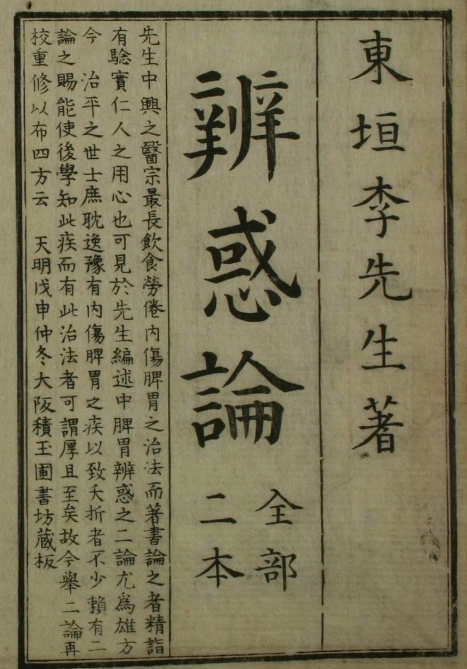 東垣李先生著
辨惑論
全部
二本
先生中興之醫宗最長飲食勞倦內傷脾胃之治法而著書論之者精詣
有驗實仁人之用心也可見於先生編述中脾胃辨惑之二論尤為雄方
今 治平之世士庶耽逸豫有內傷脾胃之疾以致夭折者不少賴有二
論之賜能使後學知此疾而有此治法者可謂厚且至矣故今舉二論再
校重修以布四方云 天明戊申仲冬大阪積玉圃書坊蔵板